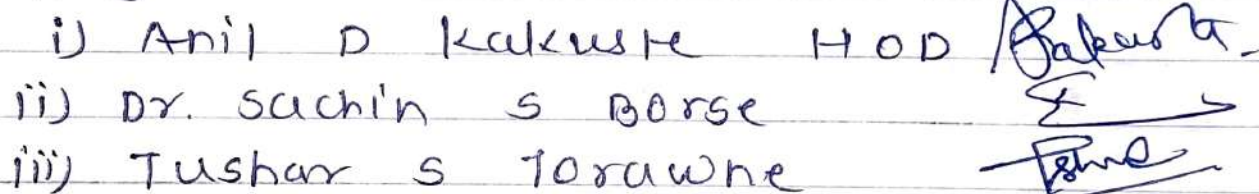 i) Anil D Kakuste HOD
ii) Dr. Sachin S Borse
iii) Tushar S Torawne